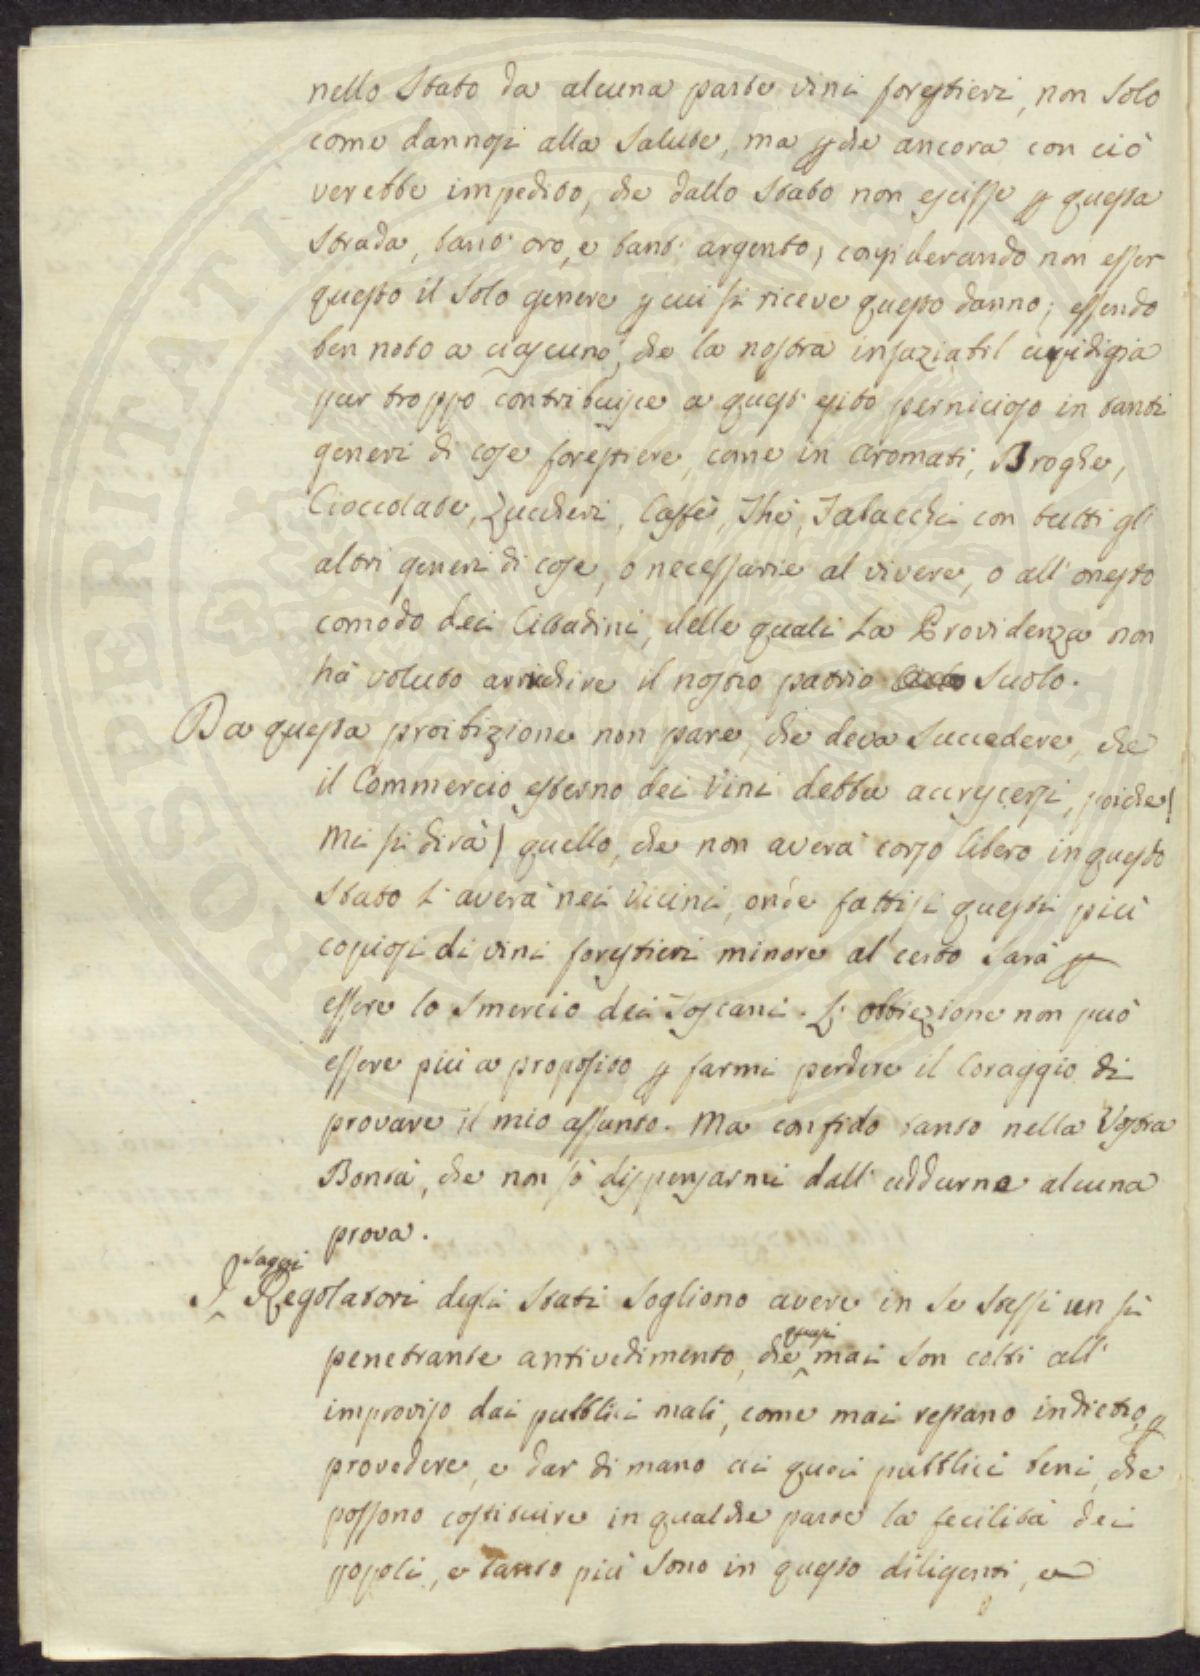 nello Stato da alcuna parte vini forestieri, non solo
come dannosi alla salute, ma pche ancora con ciò
verebbe impedito, che dallo Stato non escisse p questa
strada, tant' oro, e tant' argento, considerando non esser
questo il solo genere p cui si riceve questo danno; essendo
ben noto a ciascuno, che la nostra insaziabil cupidigia
pur troppo contribuisce a quest' esito pernicioso in tanti
generi di cose forestiere, come in Aromati, Droghe,
Cioccolate, Zuccheri, Caffè, Thè, Tabacchi con tutti gl'
altri generi di cose, o necessarie al vivere, o all' onesto
comodo dei Cittadini, delle quali La Providenza non
hà voluto arrichire il nostro patrio Suolo.
Da questa proibizione non pare, che deva succedere, che
il Commercio esterno dei Vini debba accrescersi, poiche(
mi si dirà) quello, che non averà corso libero in questo
Stato l' averà nei Vicini, onde fattisi questi più
copiosi di vini forestieri minore al certo sarà p
essere lo smercio dei Toscani. L' obbiezione non può
essere più a proposito p farmi perdere il Coraggio di
provare il mio assunto. Ma confido tanto nella Vostra
Bontà, che non sò dispensarmi dall' addurne alcuna
prova.
saggi
I Regolatori degli Stati sogliono avere in se stessi un sì
quasi
penetrante antivedimento, che mai son colti all'
improviso dai pubblici mali, come mai restano indietro, p
provedere, e dar di mano ai quei pubblici beni, che
possono costituire in qualche parte la fecilità dei
popoli, e tanto più sono in questo diligenti, e
PROSPERITATI